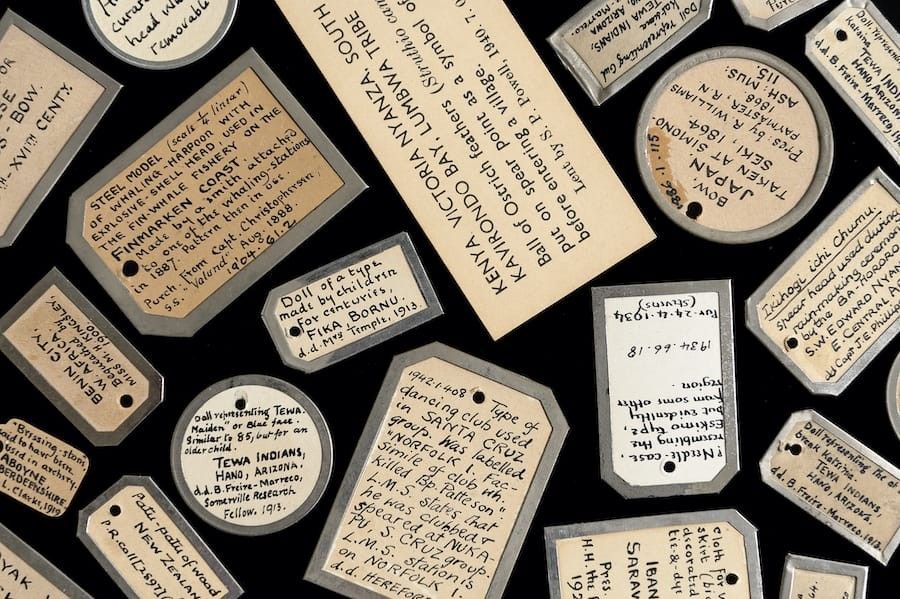 head w
removable
STEEL MODEL (scale ½ linear)
OF WHALING-HARPOON WITH
EXPLOSIVE-SHELL HEAD USED IN
THE FIN-WHALE FISHERY ON THE
FINMARKEN COAST.
Made by a smith attached
to one of the whaling-stations
in 1887. Pattern then in use.
Purch. from Capt. Christophersen,
S.S. "Valund" Aug. 1888.
1904.61.2.
KENYA VICTORIA NYANZA SOUTH
KAVIRONDO BAY, LUMBWA TRIBE
Ball of Ostrich feathers (Struthio
put on spear point as a symbol of
before entering a village.
Lent by S. P. Powell, 1940. 7. 0
Doll representing
TEWA INDIANS,
ARIZONA
BOW,
JAPAN
TAKEN AT SIMONO
SEKI 1864
Pres. by R. WILLIAMS
PAYMASTER R.N.
1868
ASH: MUS:
115.
1886.1.115
Doll representing
TEWA INDIANS
HANO, ARIZONA.
d.d. B. Freire-Marreco,
SE
- BOW.
XVITH CENTY.
Doll of a type
made by children
for centuries,
FIKA, BORNU.
d.d. Mrs Temple, 1913.
BENIN CITY,
W. AFRICA.
Bequeathed by
MISS M. KINGSLEY,
1900
Doll representing "TEWA
Maiden" or Blue face.
Similar to 85, but for an
older child.
TEWA INDIANS,
HANO, ARIZONA.
d.d. B. Freire-Marreco,
Somerville Research
Fellow, 1913.
1942.1.408
Type of
dancing club used
in SANTA CRUZ
group. Was labelled
"NORFOLK I. Fac-
simile of club wh.
killed Bp. Patteson"
L.M.S. states that
he was clubbed or
speared at NUKA-
PU, S. CRUZ group.
L.M.S. station is
on NORFOLK I.
d.d. HEREFOR
? Needle-case,
resembling the
Eskimo type,
but evidently
from some other
region.
1934.66.18
Pur. 24.4.1934
(Stevens)
Irihogi ichi chumu.
spear head used during
rainmaking ceremon
by the BA-TORORO
S.W. EDWARD NYAN
E. CENTRAL A
dd Capt T. E. Philli
Doll representing the
Greek
TEWA INDIANS,
HANO, ARIZONA.
d.d. B. Freire-Marreco, 1913.
"Birssing-stone"
said to have been
used in arch
ABOYNE,
BERDEENSHIRE.
L. Clarke, 1919
Patu-patu of wood
NEW ZEALAN
P.R. coll
YAK
cloth for
skirt (bi
decorated
tie-&-dye
IBAN
SARAW
Pres.
H.H. the
192